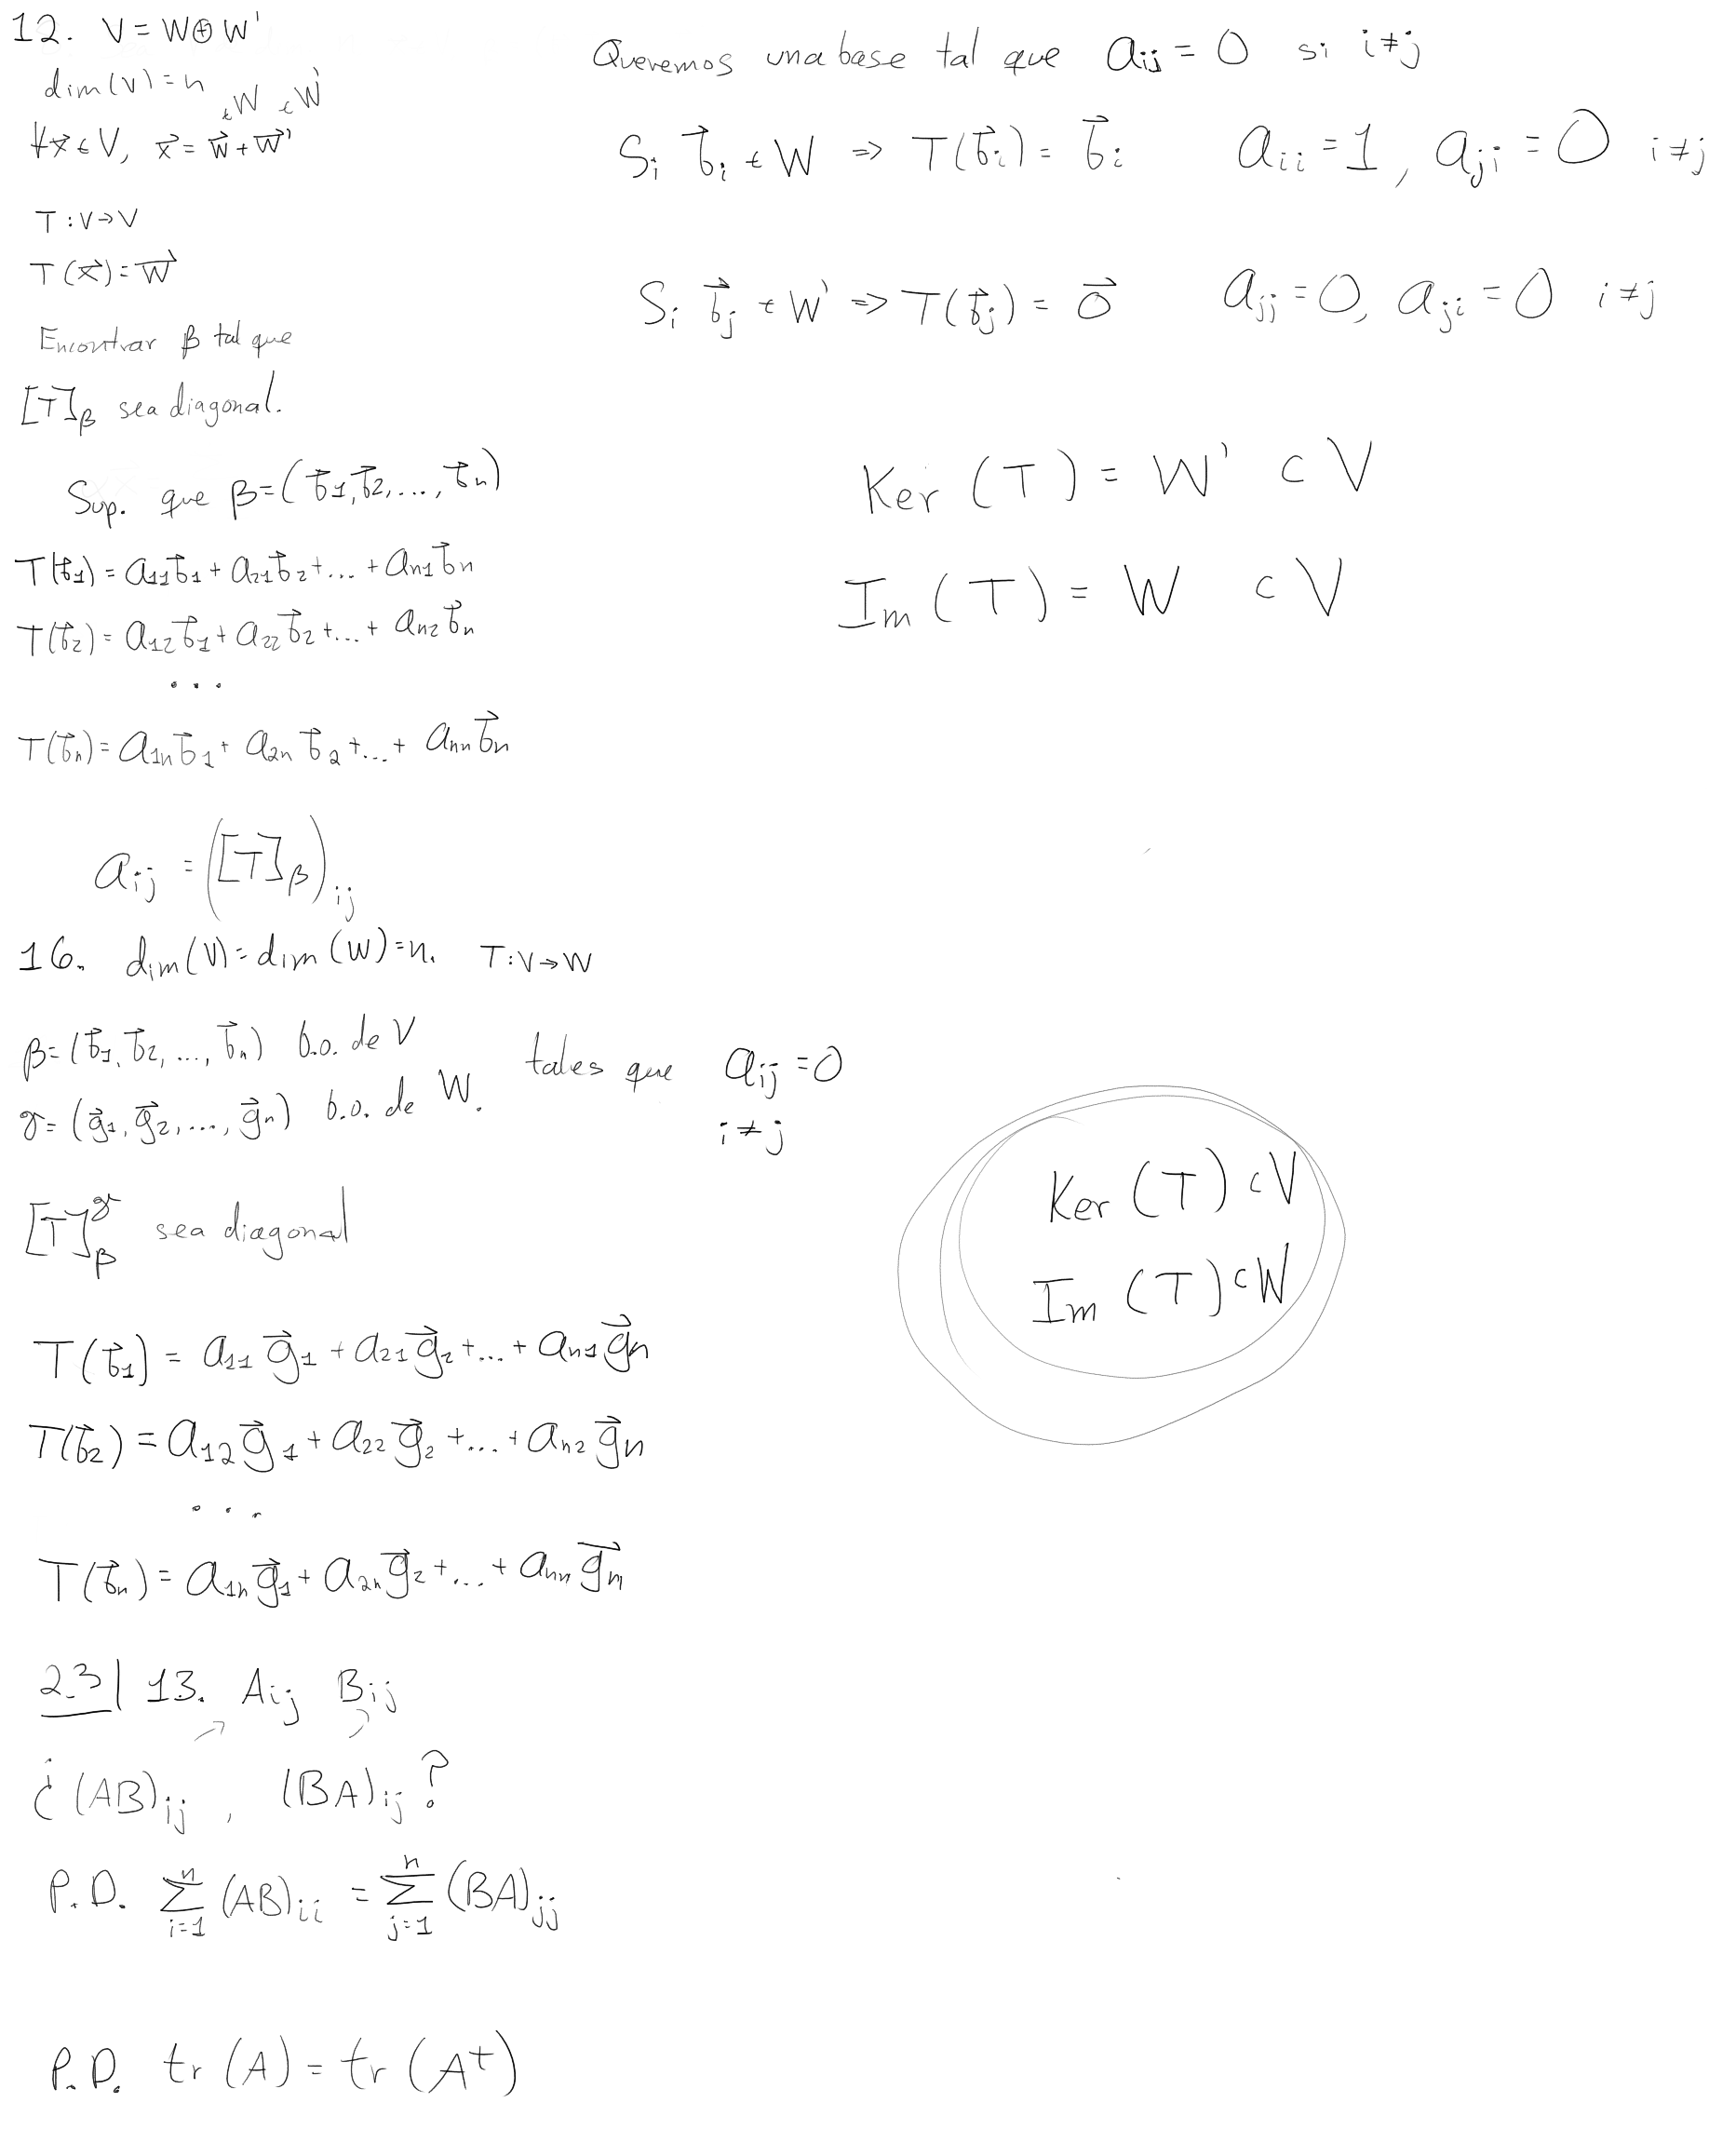 12. V = W ⊕ W'
dim(V) = n
∈W ∈W'
∀x⃗ ∈ V, x⃗ = w⃗ + w⃗'
T : V → V
T(x⃗) = w⃗
Encontrar β tal que
[T]β sea diagonal.
Sup. que β = (b⃗1, b⃗2, ..., b⃗n)
T(b⃗1) = a11 b⃗1 + a21 b⃗2 + ... + an1 b⃗n
T(b⃗2) = a12 b⃗1 + a22 b⃗2 + ... + an2 b⃗n
...
T(b⃗n) = a1n b⃗1 + a2n b⃗2 + ... + ann b⃗n
aij = ([T]β)ij
Queremos una base tal que aij = 0 si i ≠ j
Si b⃗i ∈ W => T(b⃗i) = b⃗i aii = 1, aji = 0 i ≠ j
Si b⃗j ∈ W' => T(b⃗j) = 0⃗ ajj = 0, aji = 0 i ≠ j
Ker (T) = W' ⊂ V
Im (T) = W ⊂ V
16. dim(V) = dim(W) = n. T : V → W
β = (b⃗1, b⃗2, ..., b⃗n) b.o. de V
γ = (g⃗1, g⃗2, ..., g⃗n) b.o. de W.
tales que aij = 0
i ≠ j
[T]βγ sea diagonal
Ker (T) ⊂ V
Im (T) ⊂ W
T(b⃗1) = a11 g⃗1 + a21 g⃗2 + ... + an1 g⃗n
T(b⃗2) = a12 g⃗1 + a22 g⃗2 + ... + an2 g⃗n
...
T(b⃗n) = a1n g⃗1 + a2n g⃗2 + ... + ann g⃗n
2.3| 13. Aij Bij
¿(AB)ij , (BA)ij?
P.D. ∑i=1n (AB)ii = ∑j=1n (BA)jj
P.D. tr (A) = tr (At)